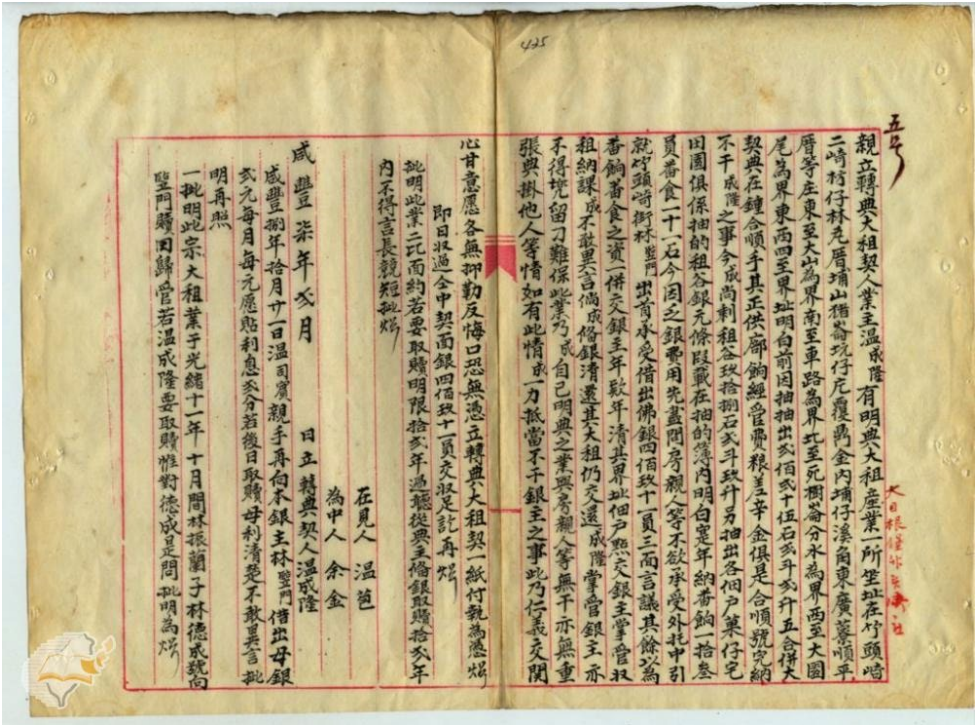 425
五号
親立轉典大租契人業主温成隆有明典大租産業一所坐址在竹頭崎
二崎枋仔林尫厝埔山猪崙坑仔尾覆鼎金内埔仔溪角東廣藔順平
厝等庄東至大山為界南至車路為界北至死樹崙分水為界西至大圳
尾為界東西四至界址明白前因抽抽出弍佰弍十伍石弍斗弍升五合併大
契典在鐘合順手其正供廍餉經管費粮差辛金俱是合順號完納
不干成隆之事今成尚剩租谷玖拾捌石弍斗玖升另抽出各佃戶菓仔宅
田園俱係抽的租谷銀元條叚載在抽的簿内明白寔年納番餉一拾叁
員番食一十一石今因乏銀費用先盡問房親人等不欲承受外托中引
就竹頭崎街林登門出首承受借出佛銀四佰玖十一員三面言議其餘以為
番餉番食之資一併交銀主年欵年清其界址佃戶照交銀主掌管收
租納課成不敢異言倘成偹銀清還其大租仍交還成隆掌管銀主亦
不得兜留刁難保此業乃成自己明典之業與房親人等無干亦無重
張典掛他人等情如有此情成一力抵當不干銀主之事此乃仁義交関
心甘意愿各無抑勒反悔口恐無憑立轉典大租契一紙付執為憑炤
即日収過仝中契面銀四佰玖十一員交収足訖再炤
批明此業二比面約若要取贖明限拾弍年過聽從典主偹銀取贖拾弍年
内不得言長競短批炤
在見人 温 芭
為中人 余 金
咸豐柒年弍月 日立轉典契人温成隆
咸豐捌年拾月廿一日温司賓親手再向本銀主林登門借出母銀
弍元每月每元愿貼利息弍分若後日取贖母利清楚不敢異言批
明再照
一批明此宗大租業于光緒十一年十月間林振蘭子林德成號向
登門贖回歸管若温成隆要取贖惟對德成是問批明為炤